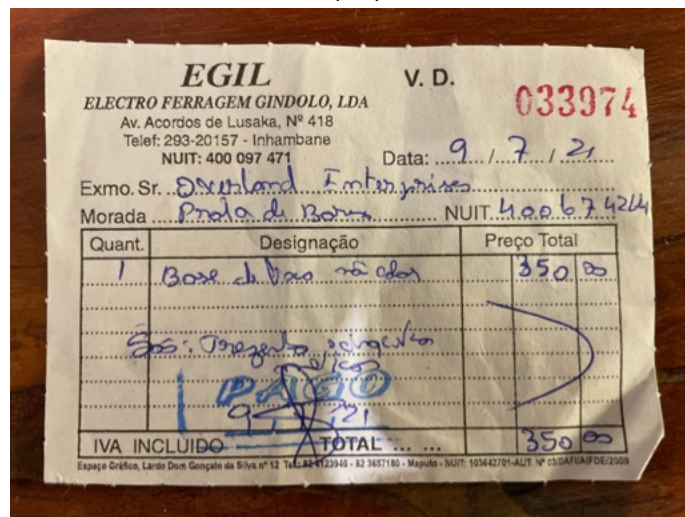 EGIL V. D.
ELECTRO FERRAGEM GINDOLO, LDA 033974
Av. Acordos de Lusaka, Nº 418
Telef: 293-20157 - Inhambane
NUIT: 400 097 471 Data: 9 / 7 / 21
Exmo. Sr. Overland Enterprises
Morada Praia de Barra NUIT. 400674244
Quant. Designação Preço Total
1 Base de 350 00
São: Trezentos
PAGO
9 21
IVA INCLUIDO TOTAL ... ... 350 00
Espaço Gráfico, Lardo Dom Gonçalo da Silva nº 12 Tel: 82 4123940 - 82 3657180 - Maputo - NUIT: 103642701-AUT. Nº 03/DAFI/AIFDE/2009